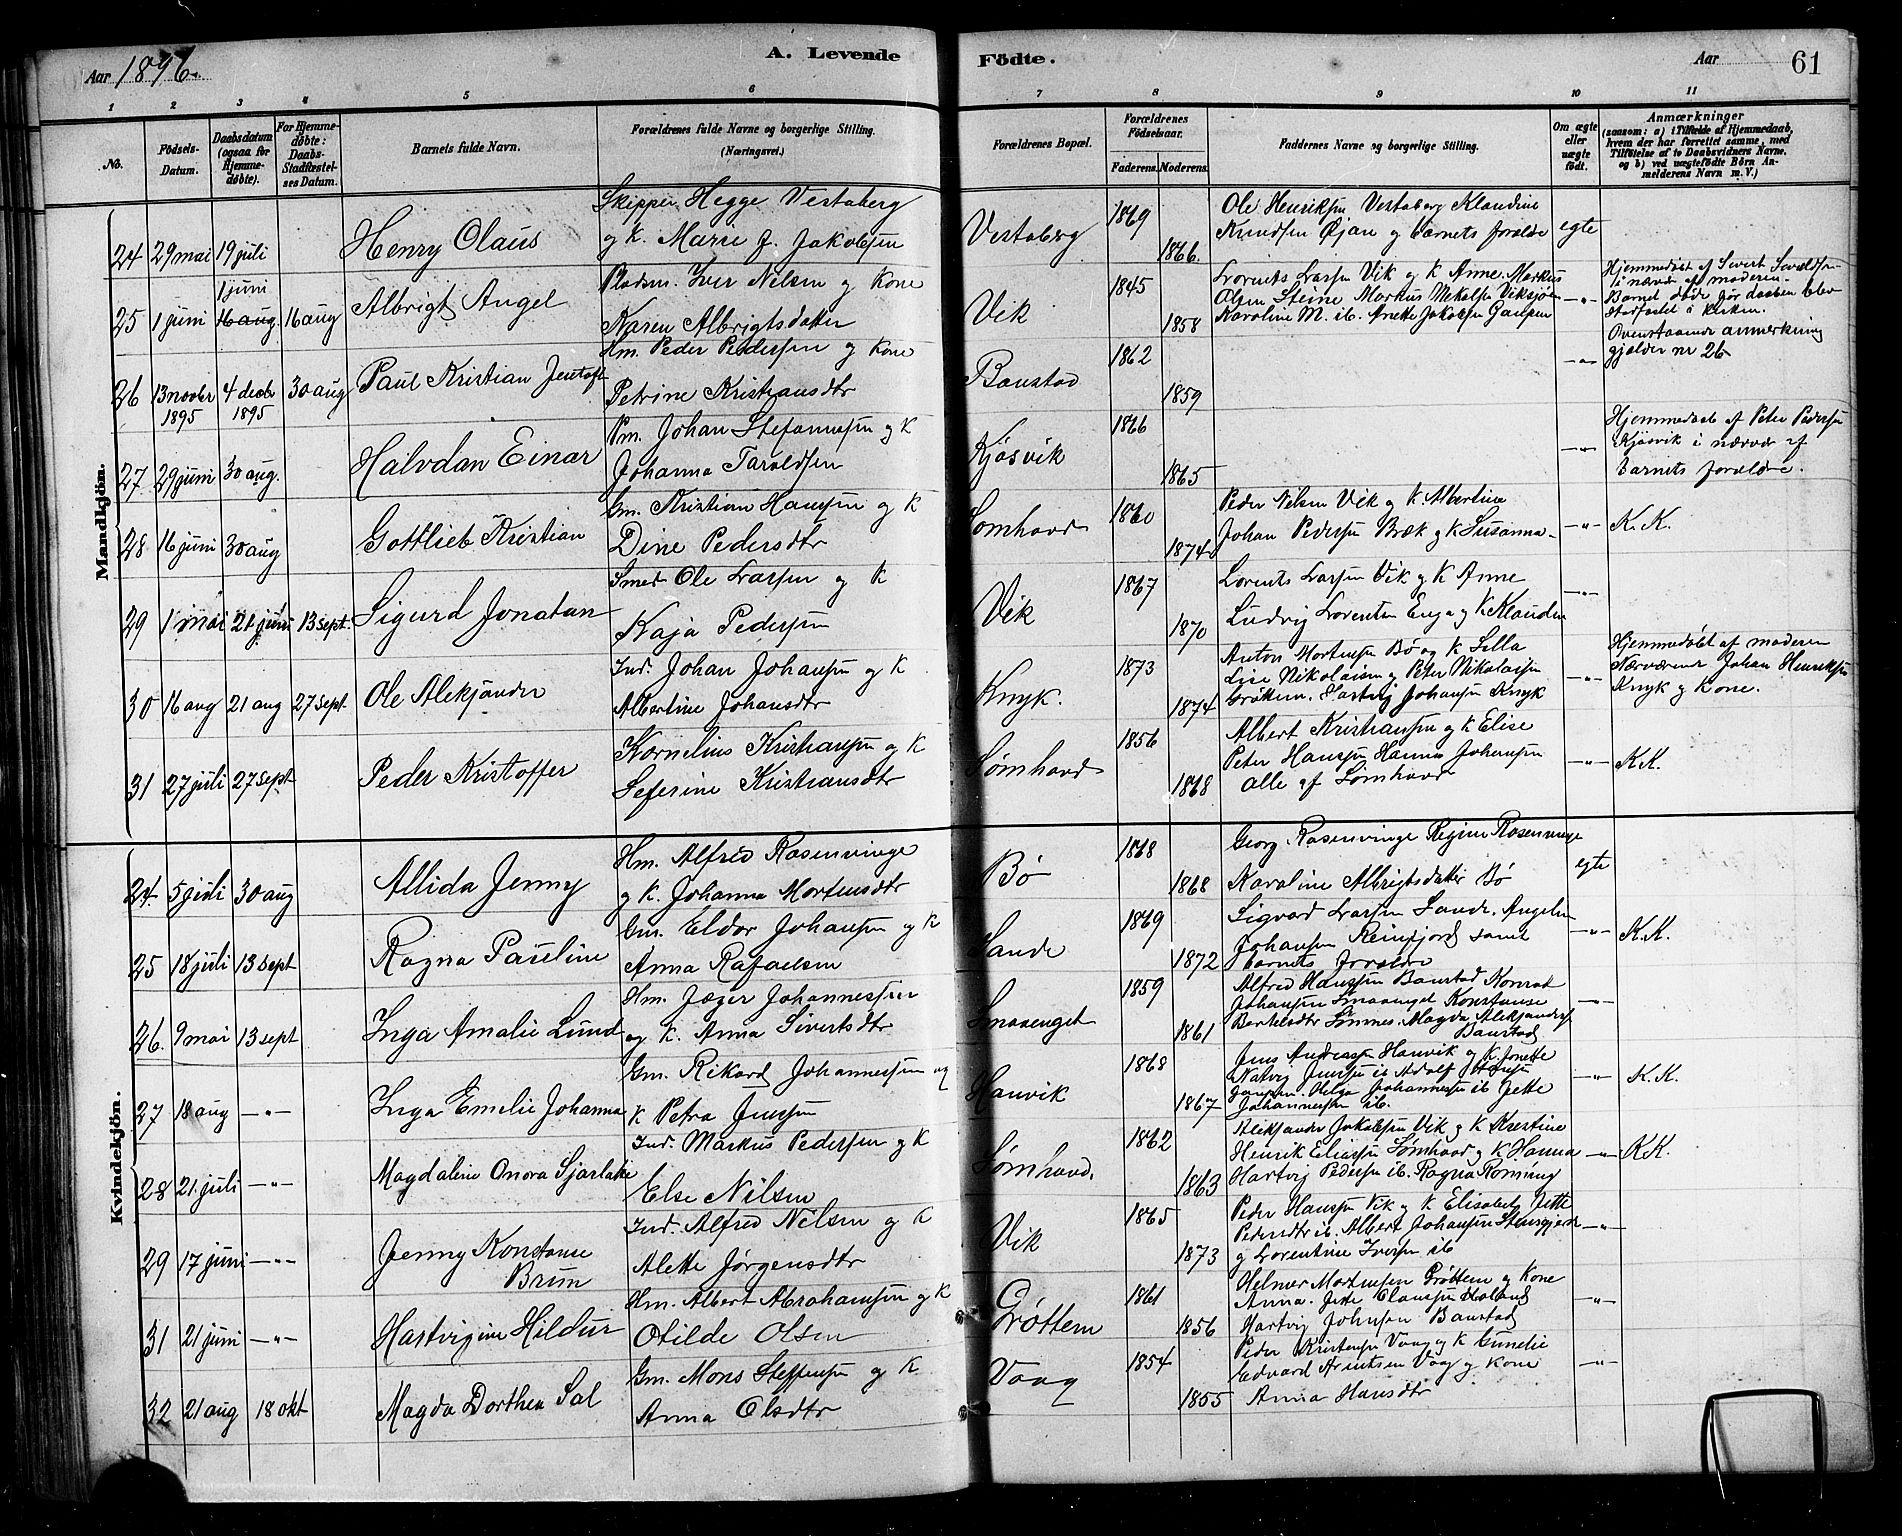 Aar 1896.
A. Levende
Födte.
Aar
61
1 2 3 4 5 6 7 8 9 10 11
No.
Födsels-Datum.
Daabsdatum (ogsaa for Hjemme-döbte).
For Hjemme-döbte: Daabs-Stadfæstel-ses Datum.
Barnets fulde Navn.
Forældrenes fulde Navne og borgerlige Stilling.
(Næringsvei.)
Forældrenes Bopæl.
Forældrenes Födselsaar.
Faderens. Moderens.
Faddernes Navne og borgerlige Stilling.
Om ægte eller uægte födt.
Anmærkninger
(saasom: a) i Tilfælde af Hjemmedaab,
hvem der har forrettet samme, med
Tilföielse af to Daabsvidners Navne,
og b) ved uægtefödte Börn An-
melderens Navn m. V.)
Mandkjön.
24 29 mai 19 juli Henry Claus
Skipper Hegge Vestaberg
og K. Marie J. Jakobsen
Vestaberg 1869 1866.
Ole Henriksen Vestaberg Klaudine
Knudsen Øjan og barnets forældre
egte
25 1 juni 1 juni 16 aug 16 aug Albrigt Angel
Pladsm. Iver Nilsen og Kone
Karen Albrigtsdatter
Vik 1845 1858
Lorents Larsen Vik og K Anne. Markus
Olsen Steine Markus Nekolsen Viksjøen
Karoline M. ib. Anette Jakobsen Gaupen
-"-
Hjemmedøbt af Sivert
i nærvær af moderen
Barnet døde før daaben blev
stadfæstet i kirken.
Ovenstaaende anmerkning
gjælder nr 26
26 13 novbr 1895 4 decbr 1895 30 aug Paul Kristian Jentoft
Hm. Peder Pedersen og Kone
Petrine Kristiansdtr
Baustad 1862 1859
-"-
27 29 juni 30 aug. Halvdan Einar
Pm. Johan Stefanussen og K
Johanna Taroldsen
Kjøsvik 1866 1865
-"-
Hjemmedøbt af Peter Pedersen
Kjøsvik i nærvær af
barnets forældre.
28 16 juni 30 aug Gottlieb Kristian
Gm. Kristian Hansen og K
Dine Pedersdtr
Sømhovd 1860 1874
Peder Nilsen Vik og K. Albertine
Johan Pedersen Bræk og K Susanna
-"- K. K.
29 1 mai 21 juni 13 sept. Sigurd Jonatan
Smed Ole Larsen og K
Kaja Pedersen
Vik 1867 1870
Lorents Larsen Vik og K Anne
Ludvig Lorentsen Enga og K Klaudine
-"-
30 16 aug 21 aug 27 sept. Ole Aleksander
Ind. Johan Johansen og K
Albertine Johansdtr
Knyk. 1873 1874
Anton Mortensen Bø og K Silla
Lise Nikolaisen og Peter Nikolaisen
Grøttem. Hartvig Johansen Knyk
-"-
Hjemmedøbt af moderen
Nærværende Johan Henriksen
Knyk og Kone.
31 27 juli 27 sept Peder Kristoffer
Kornelius Kristiansen og K
Seferine Kristiansdtr
Sømhovd 1856 1868
Albert Kristiansen og K Elise
Peter Hansen Hanna Johansen
alle af Sømhovd
-"- K K.
Kvindekjön.
24. 5 juli 30 aug Allida Jenny
Hm. Alfred Rosenvinge
og K. Johanna Mortensdtr
Bø 1868 1868
Georg Rosenvinge Regine Rosenvinge
Karoline Albrigtsdatter Bø
egte
25 18 juli 13 sept Ragna Pauline
Gm. Eldor Johansen og K
Anna Rafaelsen
Sande 1869 1872
Sigvard Larsen Sande. Angelu
Johansen Reinfjord samt
barnets forældre
-"- K. K.
26. 9 mai 13 sept Inga Amalie Lund
Hm. Jæger Johannessen
og K. Anna Sivertsdtr
Smaaenget 1859 1861
Alfred Hanssen Baustad Konrad
Johansen Smaaenget Konstanse
Bertelsdtr Sømnes. Magda Aleksandersen
Baustad
-"-
27 18 aug -"- Inga Emelie Johanna
Gm. Rikard Johannessen og
K Petra Jensen
Hanvik 1868 1867
Jens Andersen Hanvik og K. Jonette
Natvig Jensen ib Adolf Hansen
Gaupen. Helga Johannessen ib Jette
Johannessen ib.
-"- K. K.
28 21 juli -"- Magdalene Onora Sjarlotte
Ind. Markus Pedersen og K
Else Nilsen
Sømhovd. 1862 1863
Aleksander Jakobsen Vik og K Kristine
Henrik Eliassen Sømhovd og K Hanna
Hartvig Pedersen ib. Ragna Rømung
-"- K K.
29 17 juni -"- Jenny Konstanse
Brun
Ind. Alfred Nilsen og K
Alette Jørgensdtr
Vik 1865 1873
Peder Hansen Vik og K Elisabeg Jette
Pedersdtr ib. Albert Johansen Stensgjerde
og Lorentine Iversen ib
-"-
31 21 juni -"- Hartvigine Hildur
Hm. Albert Abrahamsen og K
Otilde Olsen
Grøttem 1861 1856
Helmer Mortensen Grøttem og Kone
Anna. Jette Clausen Holand
Hartvig Johnsen Baustad
-"-
32 21 aug 18 okt Magda Dorthea Sal
Gm. Mons Steffensen og K
Anna Olsdtr
Vaag 1854 1855
Peder Kristensen Vaag og K Gunelie
Edvard Arentsen Vaag og Kone
Anna Hansdtr
-"-